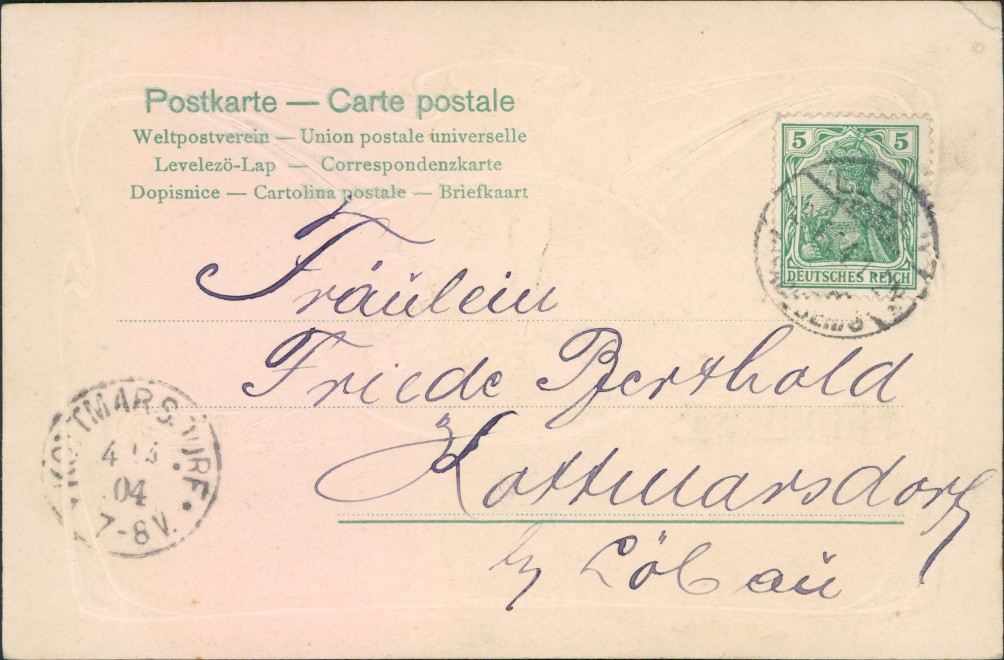 Postkarte — Carte postale
Weltpostverein — Union postale universelle
Levelezö-Lap — Correspondenzkarte
Dopisnice — Cartolina postale — Briefkaart
5 5
DEUTSCHES REICH
Fräulein
Friede Berthold
Kottmarsdorf
by Löbau
KOTTMARSDORF
4
04
7-8 V.